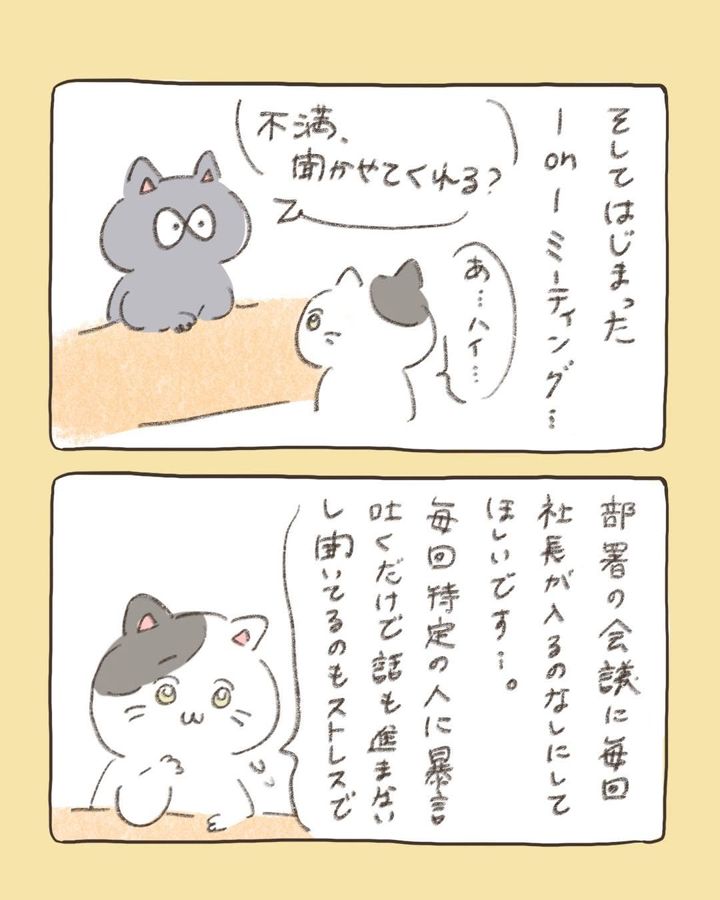 そしてはじまった
1on1ミーティング…
不満、
聞かせてくれる?
あ…ハイ…
部署の会議に毎回
社長が入るのなしにして
ほしいです…。
毎回特定の人に暴言
吐くだけで話も進まない
し聞いてるのもストレスで